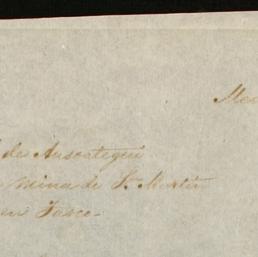 Mex
de Ansoategui
mina de Sn. Martin
en Tasco.